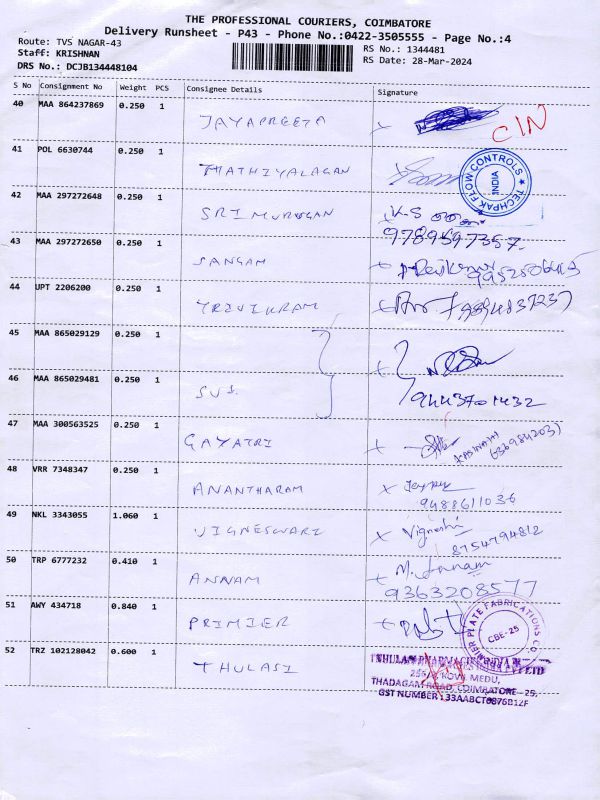 THE PROFESSIONAL COURIERS, COIMBATORE
Delivery Runsheet - P43 - Phone No.:0422-3505555 - Page No.:4
Route: TVS NAGAR-43
RS No.: 1344481
Staff: KRISHNAN
RS Date: 28-Mar-2024
DRS No.: DCJB134448104
S No Consignment No Weight PCS Consignee Details Signature
40 MAA 864237869 0.250 1
JAYAPREETA
CIN
41 POL 6630744 0.250 1
MATHIYALAGAN
TECHPAK FLOW CONTROLS
INDIA
42 MAA 297272648 0.250 1
SRI MURUGAN
K-S
9789597357
43 MAA 297272650 0.250 1
SANGAM
44 UPT 2206200 0.250 1
TRIVIKRAM
9894837237
45 MAA 865029129 0.250 1
46 MAA 865029481 0.250 1
SUJ.
9443701432
47 MAA 300563525 0.250 1
GAYATRI
48 VRR 7348347 0.250 1
ANANTHARAM
9488611036
49 NKL 3343055 1.060 1
VIGNESWARI
Vigneshi
8754794812
50 TRP 6777232 0.410 1
ANNAM
M. Annam
9363208577
51 AWY 434718 0.840 1
PRIMIER
PREMIER PLATE FABRICATIONS CO.
CBE-25
52 TRZ 102128042 0.600 1
THULASI
KOVIL MEDU,
THADAGAM ROAD, COIMBATORE-25,
GST NUMBER